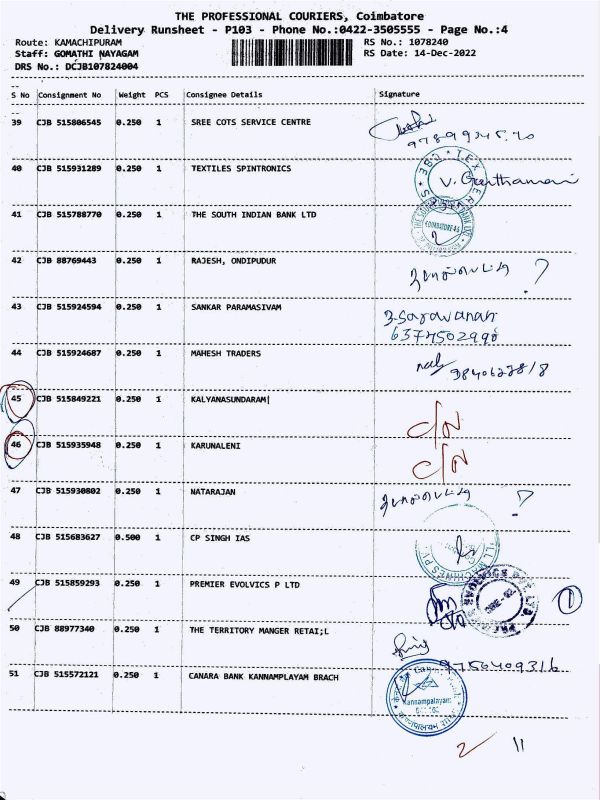 THE PROFESSIONAL COURIERS, Coimbatore
Delivery Runsheet - P103 - Phone No.:0422-3505555 - Page No.:4
Route: KAMACHIPURAM RS No.: 1078240
Staff: GOMATHI NAYAGAM RS Date: 14-Dec-2022
DRS No.: DCJB107824004
S No Consignment No Weight PCS Consignee Details Signature
39 CJB 515806545 0.250 1 SREE COTS SERVICE CENTRE
40 CJB 515931289 0.250 1 TEXTILES SPINTRONICS
41 CJB 515788770 0.250 1 THE SOUTH INDIAN BANK LTD
COIMBATORE-45
42 CJB 88769443 0.250 1 RAJESH, ONDIPUDUR ?
43 CJB 515924594 0.250 1 SANKAR PARAMASIVAM
6374502990
44 CJB 515924687 0.250 1 MAHESH TRADERS
45 CJB 515849221 0.250 1 KALYANASUNDARAM| C/N
46 CJB 515935948 0.250 1 KARUNALENI C/N
47 CJB 515930802 0.250 1 NATARAJAN ?
48 CJB 515683627 0.500 1 CP SINGH IAS
49 CJB 515859293 0.250 1 PREMIER EVOLVICS P LTD 1
50 CJB 88977340 0.250 1 THE TERRITORY MANGER RETAI;L
9750409316
51 CJB 515572121 0.250 1 CANARA BANK KANNAMPLAYAM BRACH
Kannampalayam
2 11